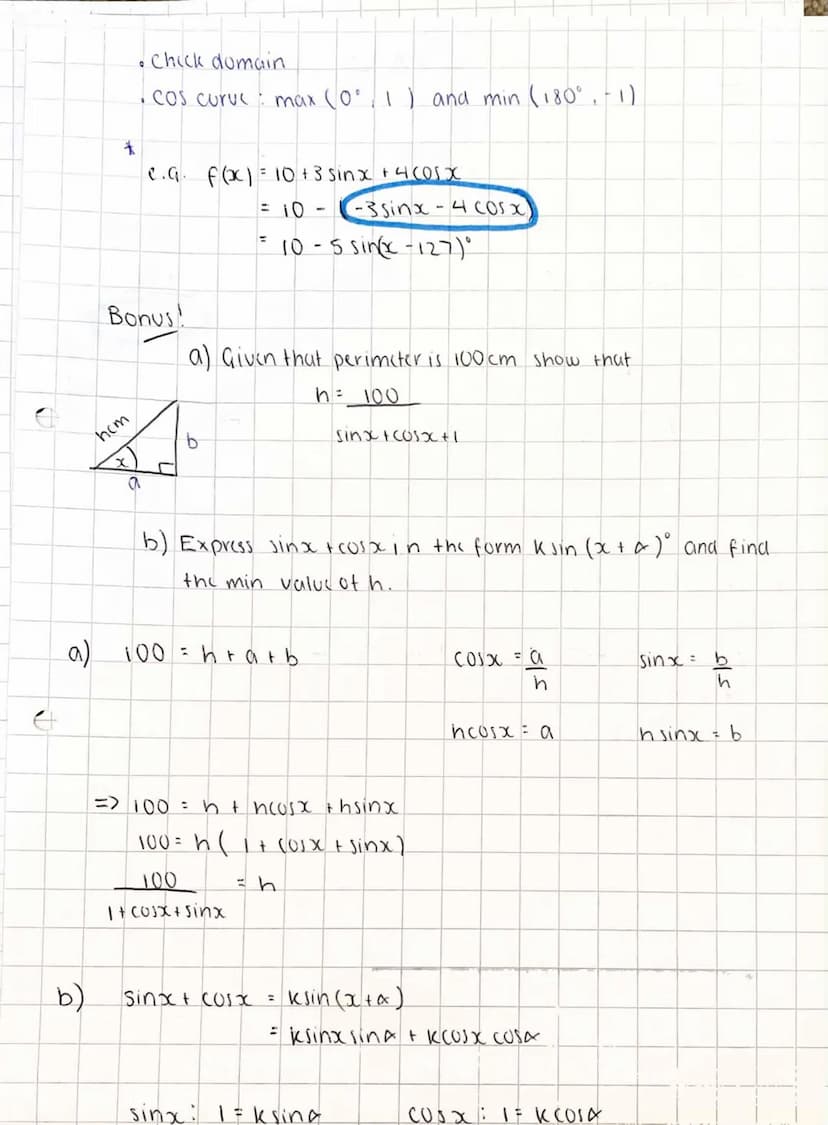 . Check domain
. cos curve : max (0°, 1) and min (180°, -1)
*
e.g. f(x) = 10 + 3 sinx + 4cosx
= 10 - (-3sinx - 4cosx)
= 10 - 5 sin(x - 127)°
Bonus!
a) Given that perimeter is 100cm show that
h = 100
sinx + cosx + 1
hcm
b
x
a
b) Express sinx + cosx in the form k sin (x + α)° and find
the min value of h.
a) 100 = h + a + b cosx = a/h sinx = b/h
hcosx = a h sinx = b
=> 100 = h + hcosx + hsinx
100 = h ( 1 + cosx + sinx)
100 = h
1 + cosx + sinx
b) sinx + cosx = ksin(x+α)
= ksinx sinα + kcosx cosα
sinx : 1 = ksinα cosx : 1 = kcosα